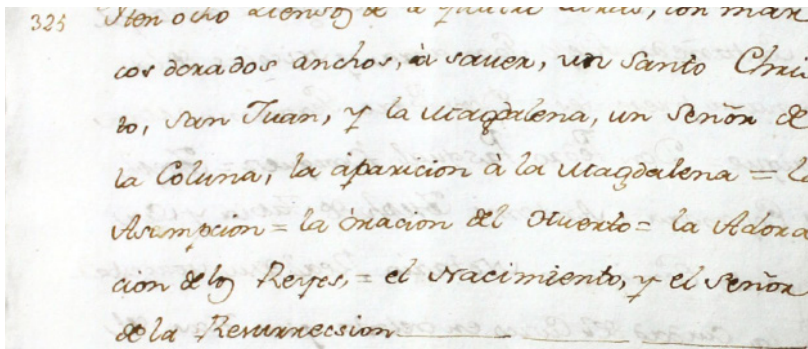 325 Iten ocho Lienzos de a quatro varas, con mar
cos dorados anchos, à saver, un Santo Chris
to, San Juan, y la Magdalena, un Señor de
la Coluna, la aparicion à la Magdalena = la
Asumpcion = la òracion del Huerto = la Adora
cion de los Reyes, = el Nacimiento, y el Señor
de la Resurrecsion